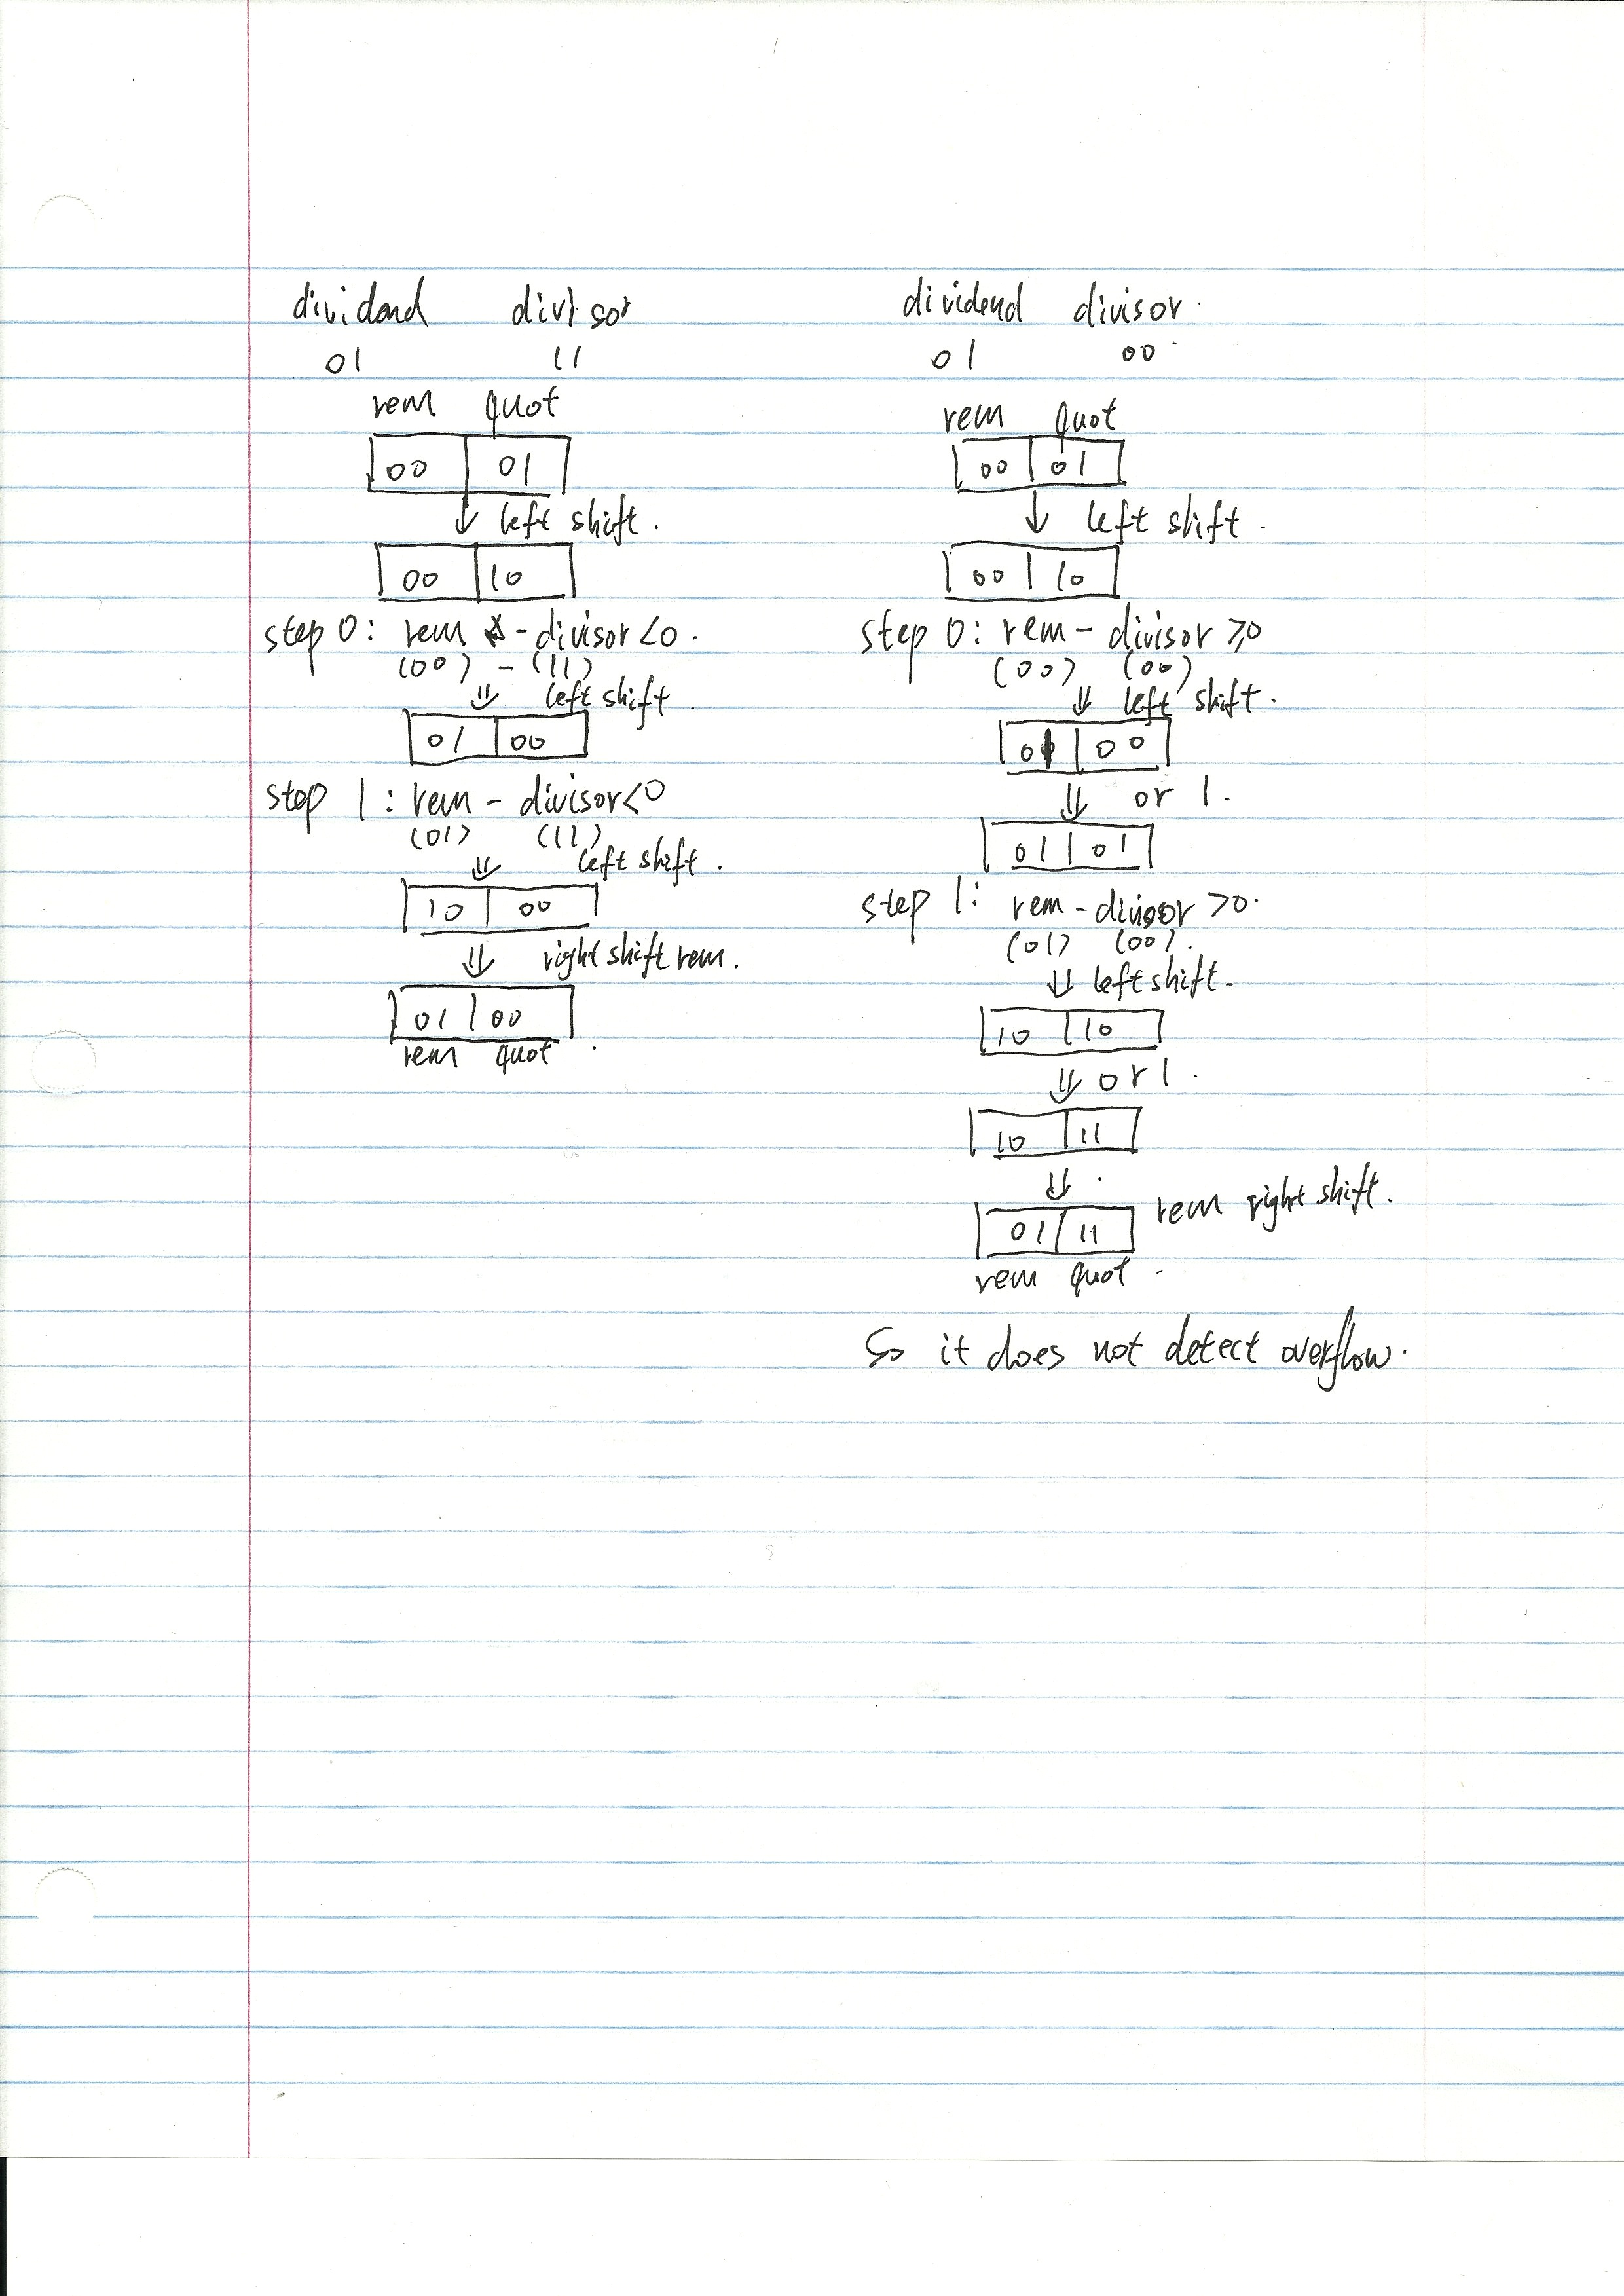 dividend divisor
01 11
rem quot
00 01
left shift.
00 10
step 0: rem - divisor<0.
(00) - (11)
left shift.
01 00
step 1: rem - divisor<0
(01) (11)
left shift.
10 00
right shift rem.
01 00
rem quot.
dividend divisor.
01 00
rem quot
00 01
left shift.
00 10
step 0: rem - divisor ≥0
(00) (00)
left shift.
01 00
or 1.
01 01
step 1: rem - divisor >0.
(01) (00).
left shift.
10 10
or 1.
10 11
01 11 rem right shift.
rem quot.
So it does not detect overflow.